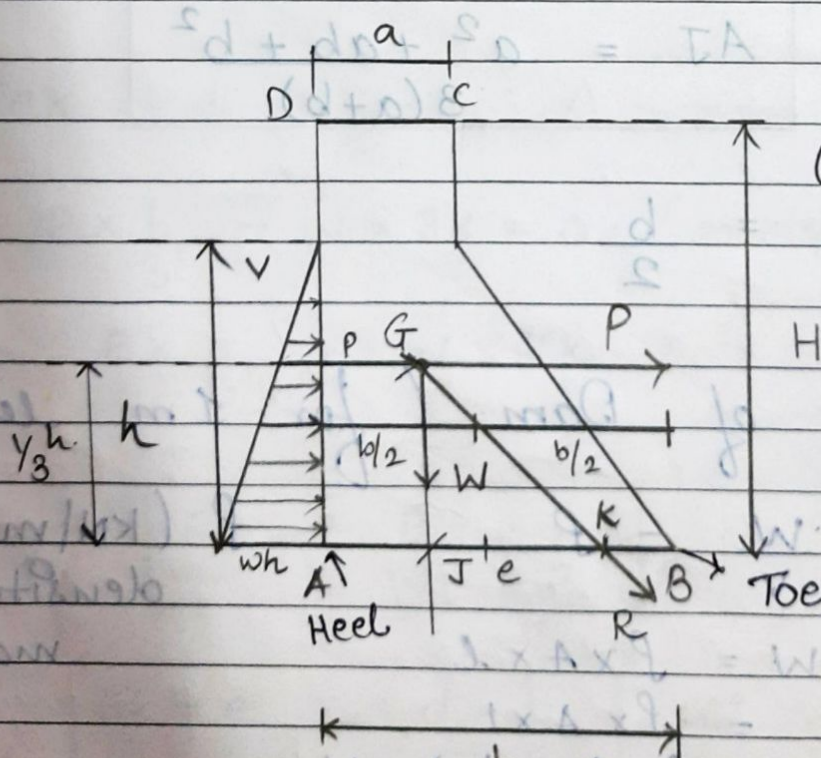 a
D C
V
P G P
H
h
1/3 h
b/2 W b/2
K
wh A J e B Toe
Heel R